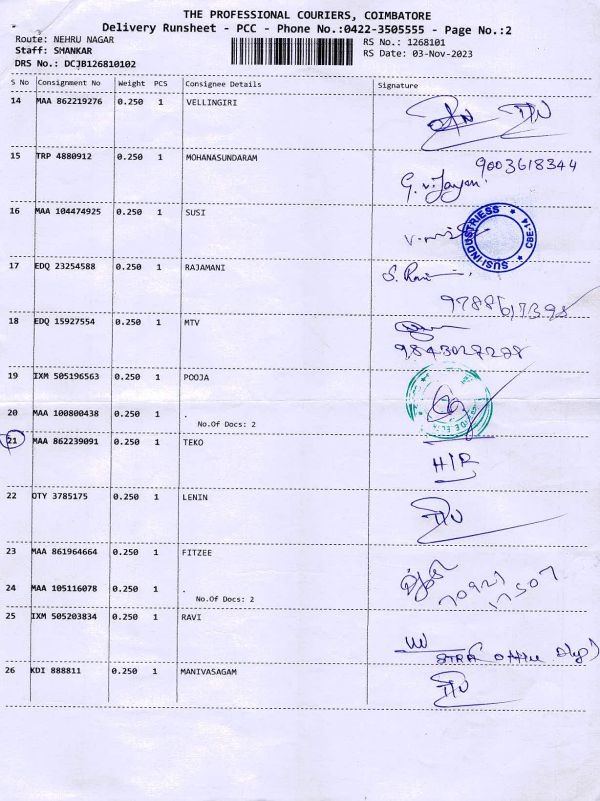 THE PROFESSIONAL COURIERS, COIMBATORE
Delivery Runsheet - PCC - Phone No.:0422-3505555 - Page No.:2
Route: NEHRU NAGAR
RS No.: 1268101
Staff: SMANKAR
RS Date: 03-Nov-2023
DRS No.: DCJB126810102
S No Consignment No Weight PCS Consignee Details Signature
14 MAA 862219276 0.250 1 VELLINGIRI
15 TRP 4880912 0.250 1 MOHANASUNDARAM 9003618344
G. Vijayan.
16 MAA 104474925 0.250 1 SUSI
SUSI INDUSTRIESS * CBE-14 *
17 EDQ 23254588 0.250 1 RAJAMANI
9788617398
18 EDQ 15927554 0.250 1 MTV
19 IXM 505196563 0.250 1 POOJA
20 MAA 100800438 0.250 1 .
No.Of Docs: 2
21 MAA 862239091 0.250 1 TEKO
H/R
22 OTY 3785175 0.250 1 LENIN
23 MAA 861964664 0.250 1 FITZEE
70921
17507
24 MAA 105116078 0.250 1 .
No.Of Docs: 2
25 IXM 505203834 0.250 1 RAVI
26 KDI 888811 0.250 1 MANIVASAGAM